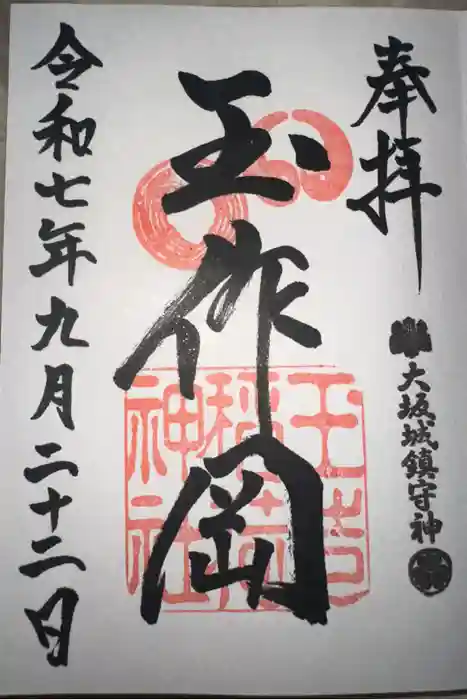 奉拝
大坂城鎮守神
玉作岡
玉造稲荷神社
令和七年九月二十二日